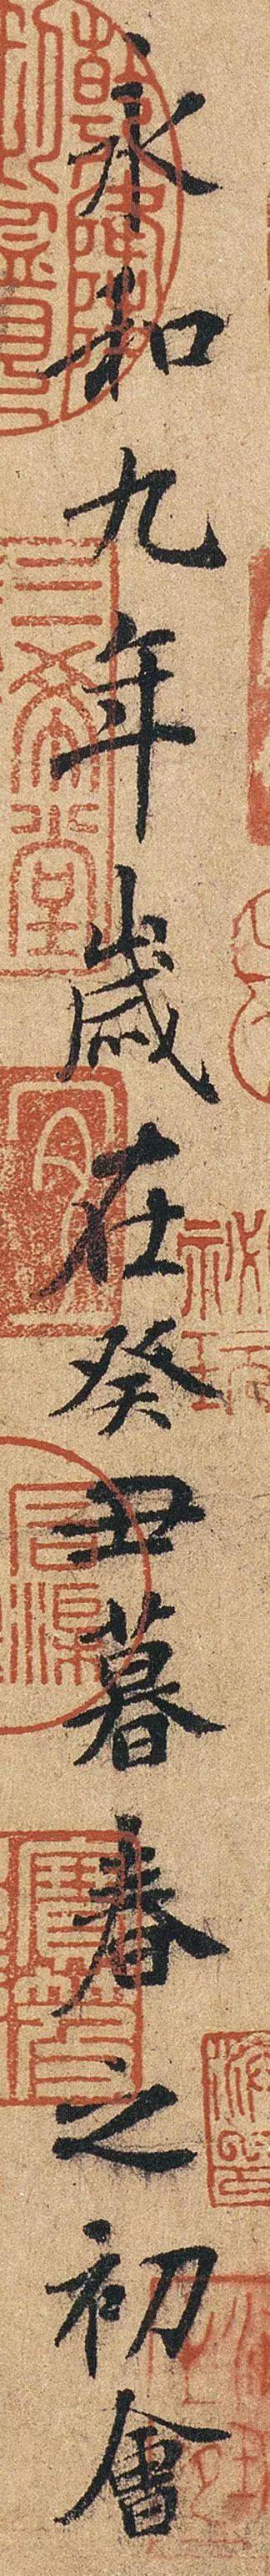 永和九年歲在癸丑暮春之初會
三希堂